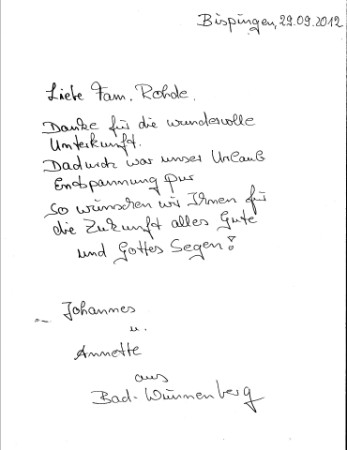 Bispingen, 29.09.2012
Liebe Fam. Rohde,
Danke für die wundervolle
Unterkunft.
Dadurch war unser Urlaub
Entspannung pur
So wünschen wir Ihnen für
die Zukunft alles Gute
und Gottes Segen!
Johannes
u.
Annette
aus
Bad-Wünnenberg